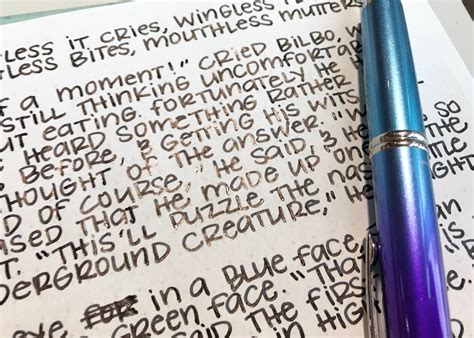 LESS IT CRIES, WINGLESS
THLESS BITES, MOUTHLESS MUTTERS
F A MOMENT!" CRIED BILBO, W
STILL THINKING UNCOMFORTAB
UT EATING. FORTUNATELY HE
HEARD SOMETHING RATHER
BEFORE, & GETTING HIS WITS
THOUGHT OF THE ANSWER. "W SO
D OF COURSE," HE SAID, &
ASED THAT HE MADE UP ON TLE
T. "THIS'LL PUZZLE THE NAS
DERGROUND CREATURE," HE
EYE IN A BLUE FACE, AN
GREEN FACE. "THA
SAID THE FIRS
IN HIGH